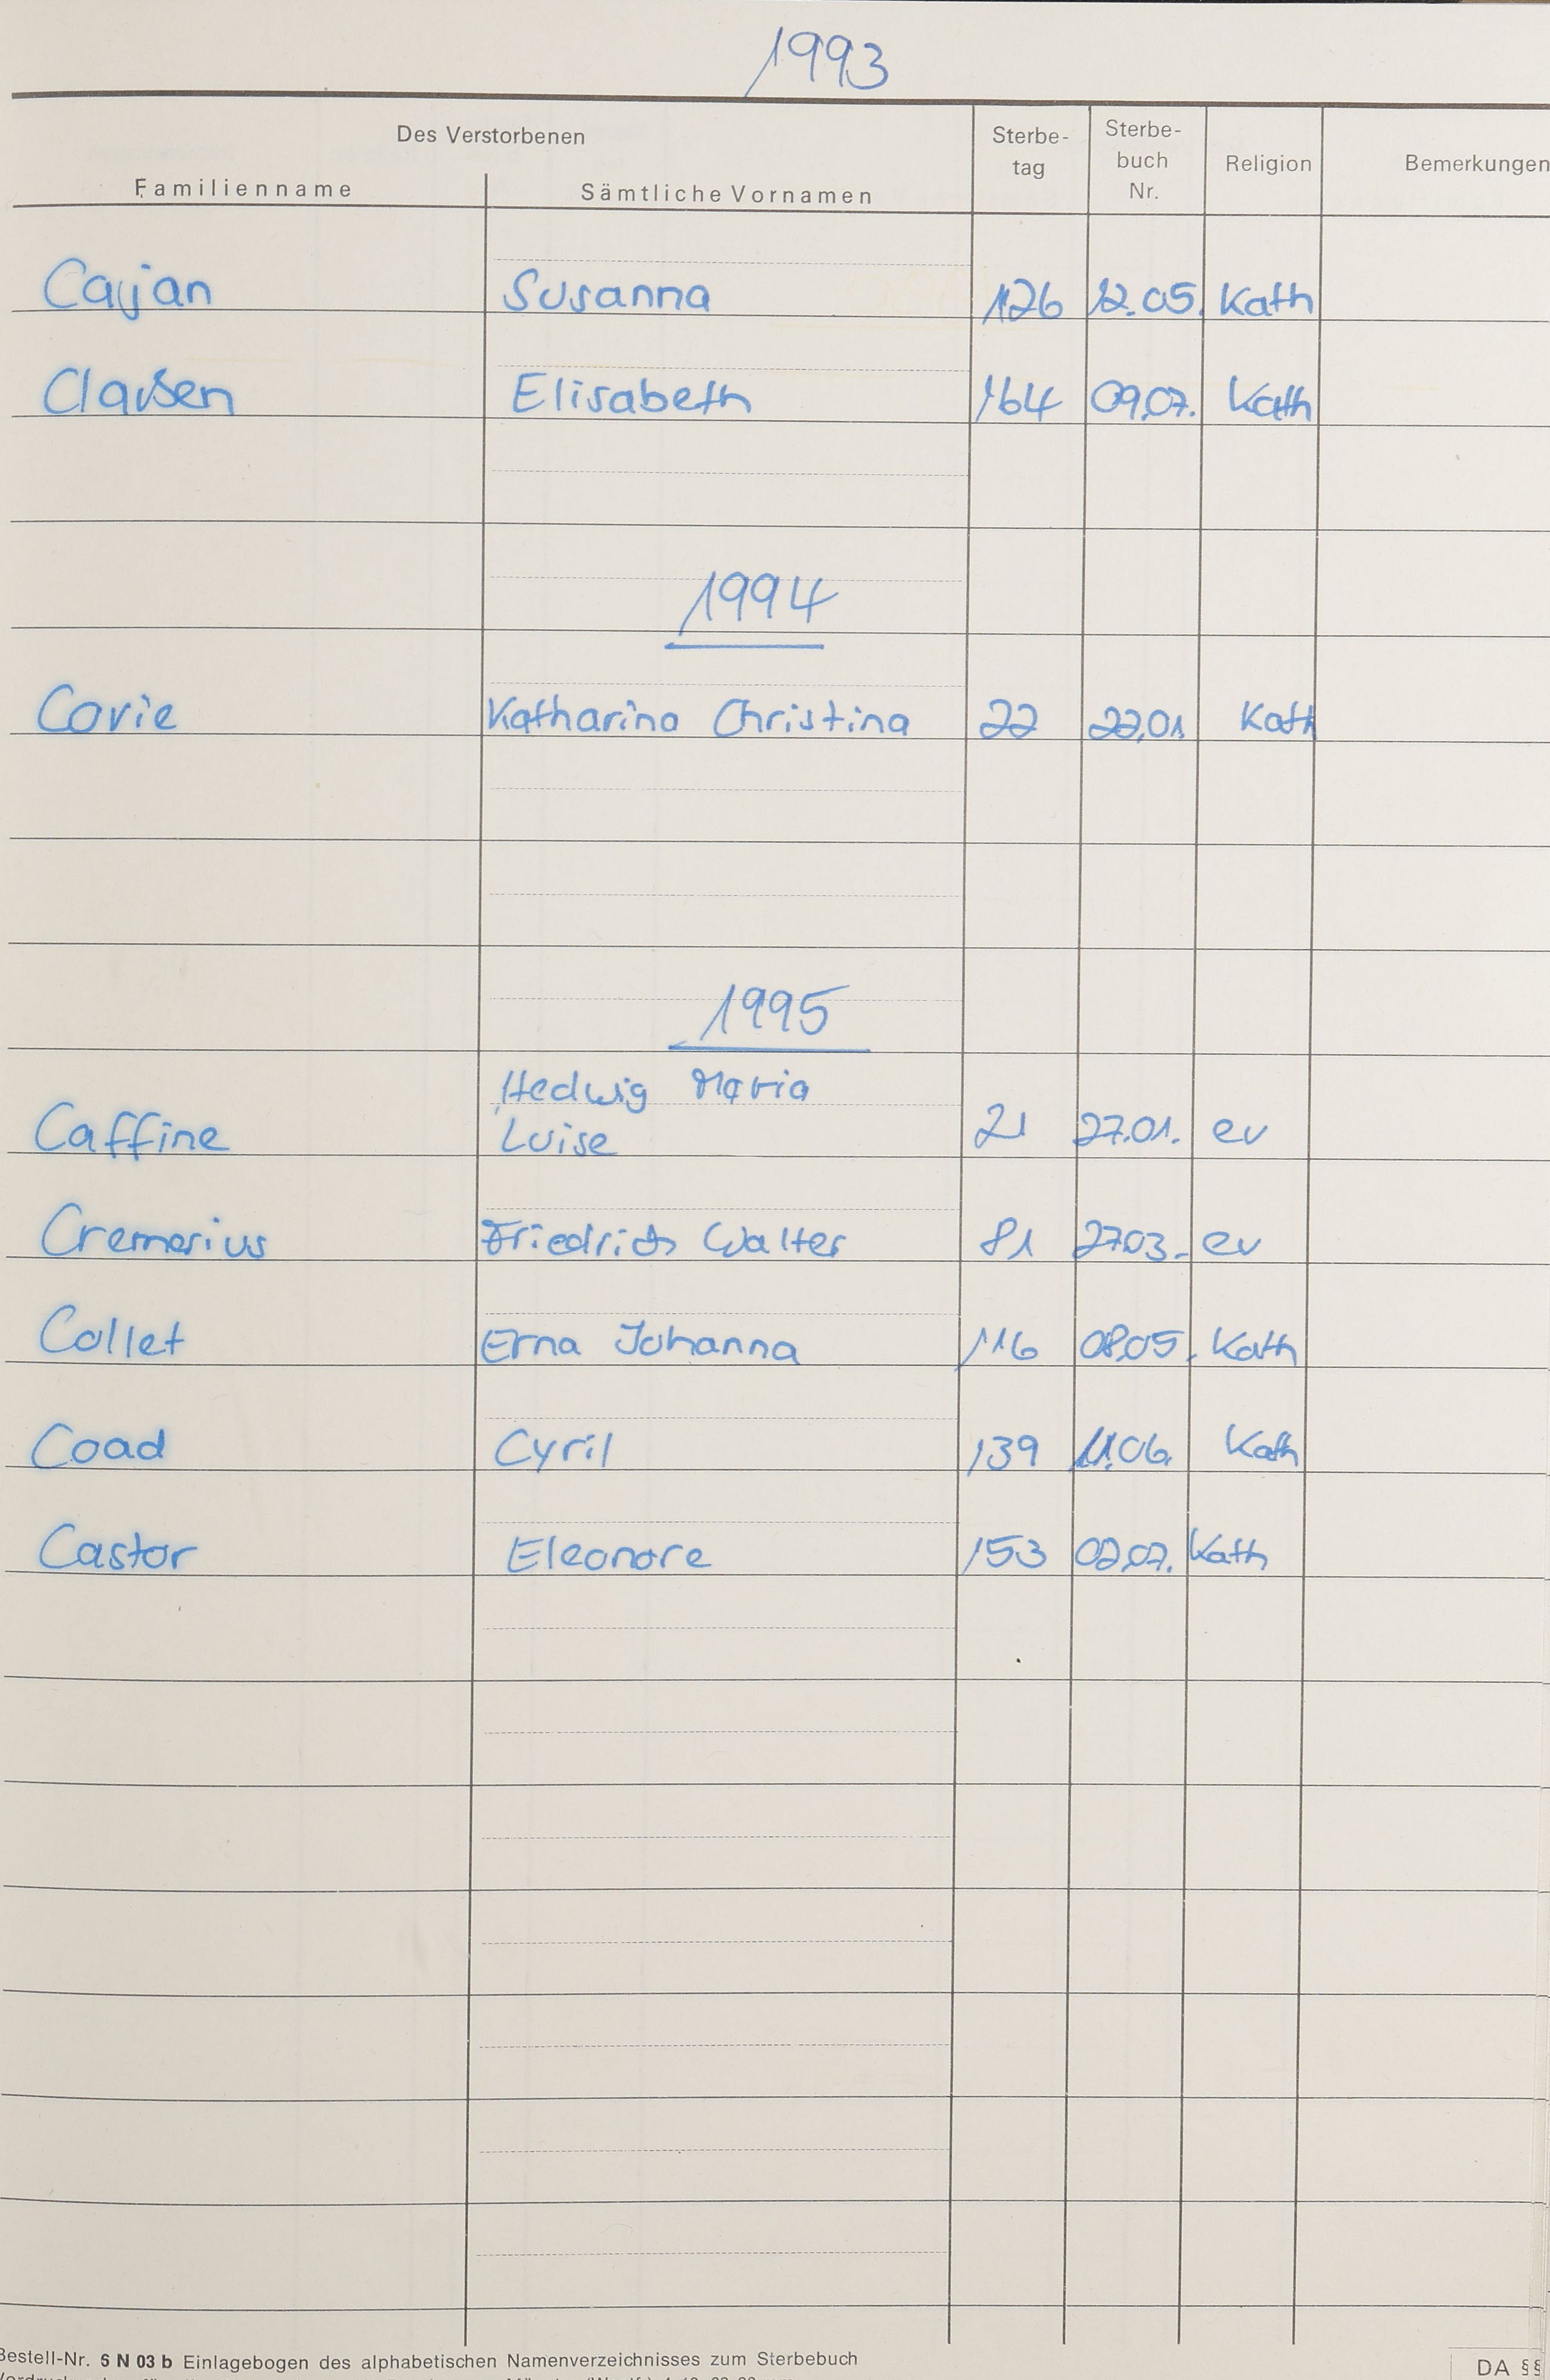 1993
Des Verstorbenen
Familienname
Sämtliche Vornamen
Sterbe-
tag
Sterbe-
buch
Nr.
Religion
Bemerkungen
Cajan Susanna 126 12.05. Kath
Claßen Elisabeth 164 09.07. Kath
1994
Corie Katharina Christina 22 22.01. Kath
1995
Hedwig Maria
Caffine Luise 21 27.01. ev
Cremerius Friedrich Walter 81 27.03. ev
Collet Erna Johanna 116 08.05. Kath
Coad Cyril 139 11.06. Kath
Castor Eleonore 153 02.07. Kath
Bestell-Nr. 6 N 03 b Einlagebogen des alphabetischen Namenverzeichnisses zum Sterbebuch
DA §§